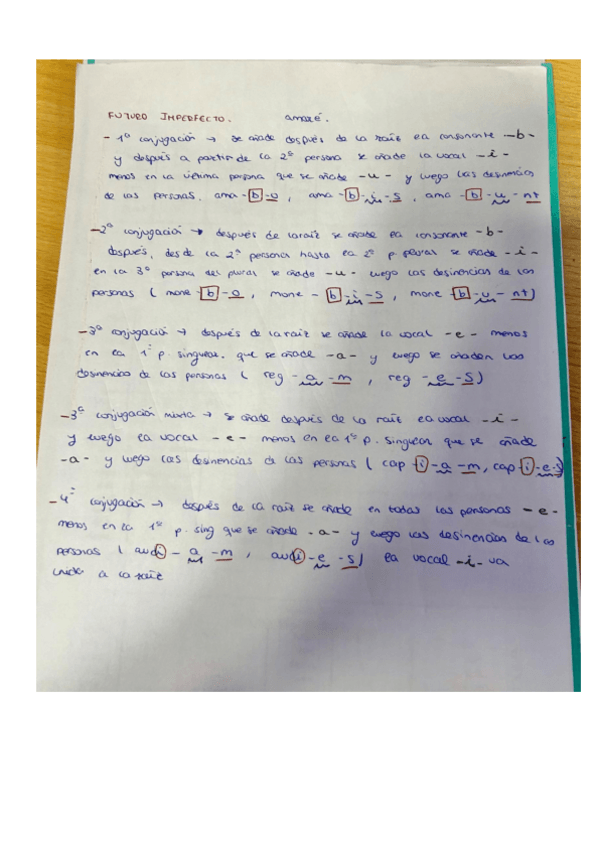 FUTURO IMPERFECTO. amaré.
- 1ª conjugación → se añade después de la raíz la consonante -b-
y después a partir de la 2ª persona se añade la vocal -i-
menos en la última persona que se añade -u- y luego las desinencias
de las personas. ama-b-o, ama-b-i-s, ama-b-u-nt
- 2ª conjugación → después de la raíz se añade la consonante -b-
después, desde la 2ª persona hasta la 2ª p. plural se añade -i-
en la 3ª persona del plural se añade -u- luego las desinencias de las
personas (mone-b-o, mone-b-i-s, mone-b-u-nt)
- 3ª conjugación → después de la raíz se añade la vocal -e- menos
en la 1ª p. singular, que se añade -a- y luego se añaden las
desinencias de las personas (reg-a-m, reg-e-s)
- 3ª conjugación mixta → se añade después de la raíz la vocal -i-
y luego la vocal -e- menos en la 1ª p. singular que se añade
-a- y luego las desinencias de las personas (cap-i-a-m, cap-i-e-s)
- 4ª conjugación → después de la raíz se añade en todas las personas -e-
menos en la 1ª p. sing que se añade -a- y luego las desinencias de las
personas (audi-a-m, audi-e-s) la vocal -i- va
unida a la raíz